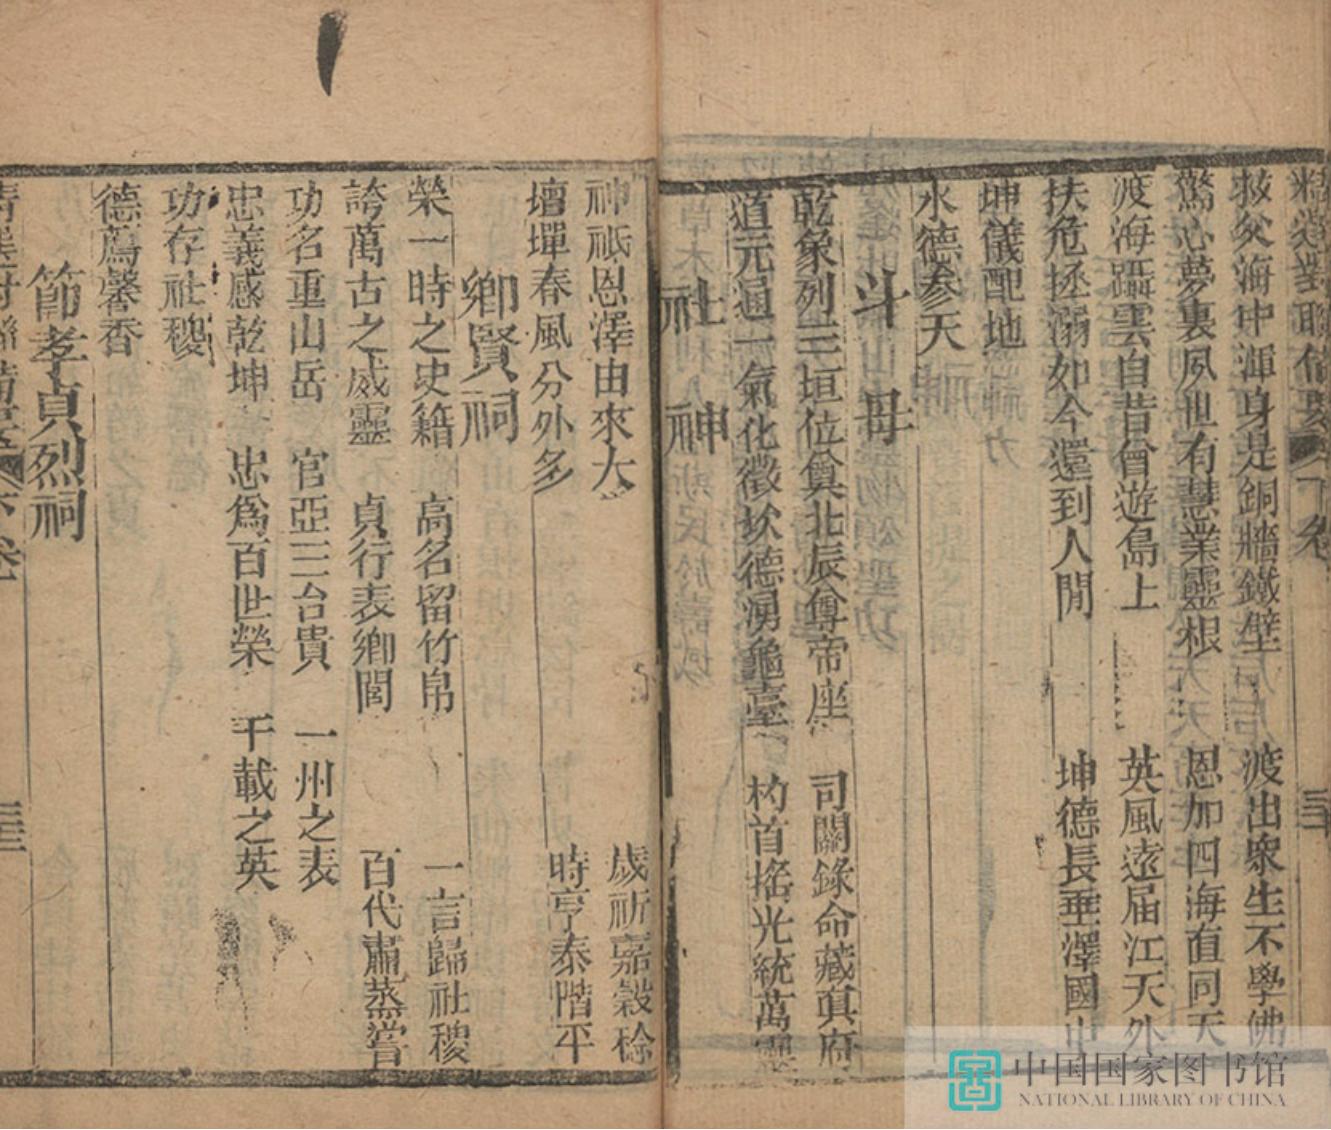 精選對聯備要 下卷 三
救父海中渾身是銅牆鐵壁 渡出衆生不學佛
驚心夢裏夙世有慧業靈根 恩加四海直同天
渡海躡雲自昔曾遊島上 英風遠届江天外
扶危拯溺如今還到人閒 坤德長垂澤國中
坤儀配地
水德參天
斗母
乾象列三垣位奠北辰尊帝座 司關錄命藏眞府
道元通一氣化徵坎德湧龜臺 杓首搖光統萬靈
土神
神祇恩澤由來大 歲祈嘉穀稔
壇墠春風分外多 時亨泰階平
鄉賢祠
榮一時之史籍 高名留竹帛 一言歸社稷
誇萬古之威靈 貞行表鄉閭 百代肅蒸嘗
功名重山岳 官亞三台貴 一州之表
忠義感乾坤 忠爲百世榮 千載之英
功存社稷
德薦馨香
節孝貞烈祠
精選對聯備要 下卷 三三
中国国家图书馆
NATIONAL LIBRARY OF CHINA